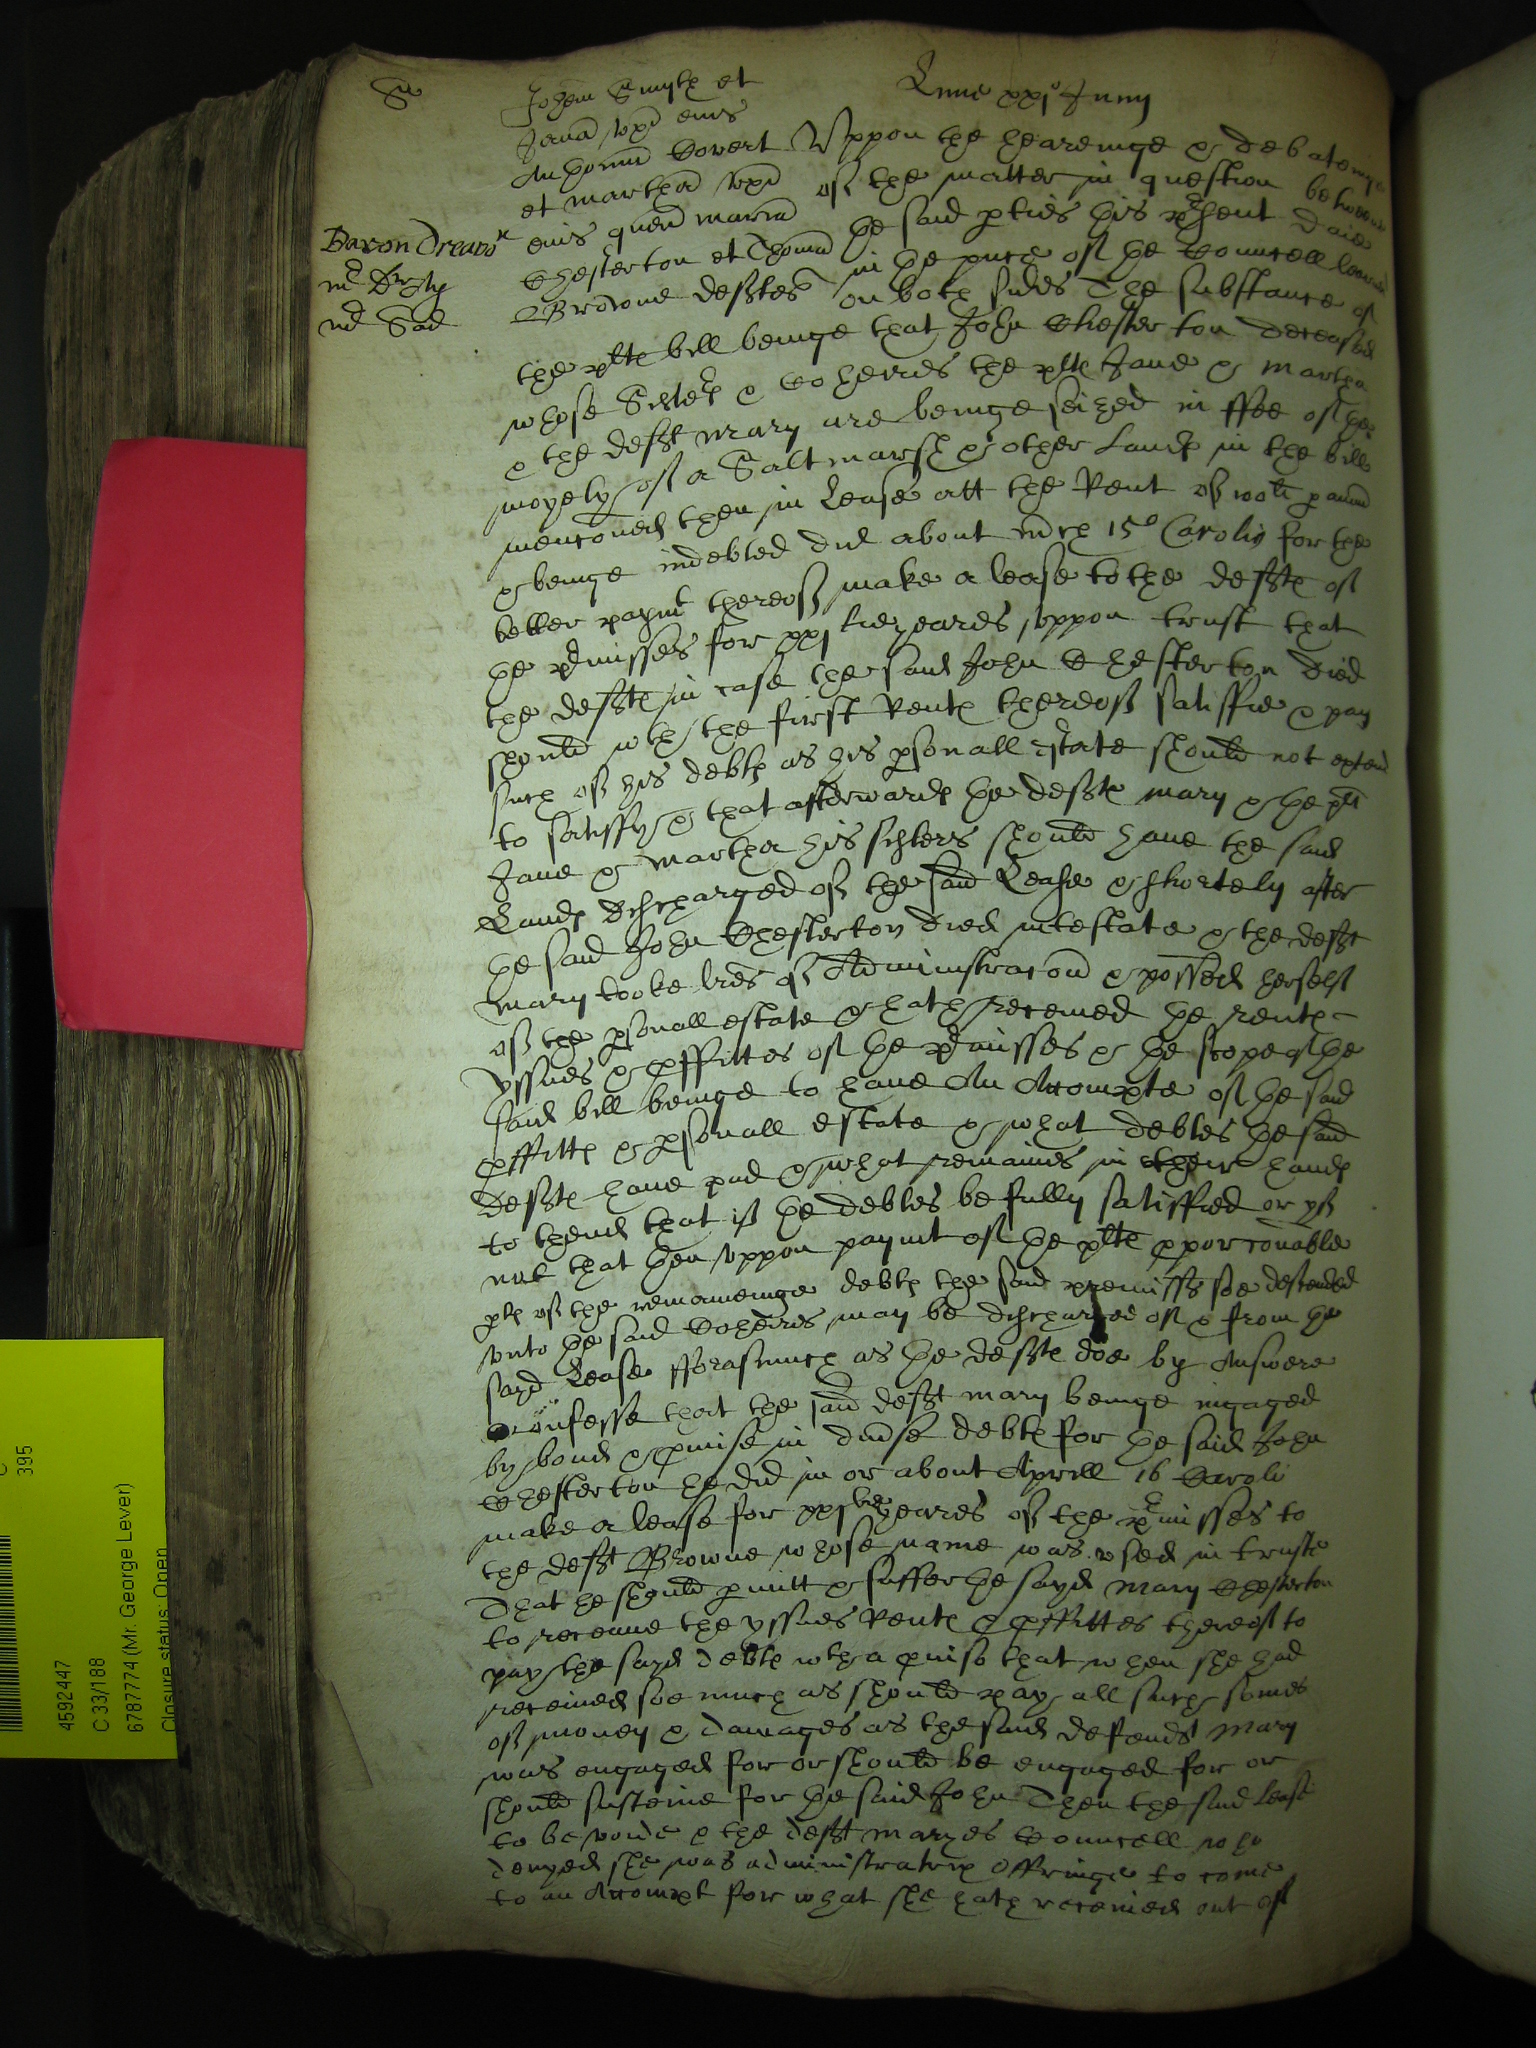 Lune xxjo Junij
Sm
Johem Smyth et
Janā vxē eius
Anthoniū Covert
et marthā vxē
eius querē mariā
Chesterton et Thomā
Browne deftes
Baron Dreavor
Vppon the heareinge & debateinge
of the matter in question betweene
the said pties this pñt daie
in the pñce of the Councell learned
on both sides The substance of
the plts bill beinge that John Chesterton deceased
whose Sisters & Coheires the plts Jane & Martha
& the deft Mary are beinge seized in ffee of the
moyety of a Saltmarsh & other Lands in the bill
menconed then in Lease att the Rent of 100li p annū
& beinge indebted did about m̄ch 15o Caroli for the
better paymt thereof make a lease to the defts of
the p̄misses for xxj tie yeares vppon trust that
the defts in case the said John Chesterton died
should wth the first Rents thereof satisfie & pay
such of his debts as his psonall estate should not extend
to satisfy & that afterwards the defts mary & the plts
Jane & Martha his sisters should haue the said
Lands discharged of the said Lease & shortely after
the said John Chesterton died intestate & the deft
Mary tooke lr̄es of Administracon & possed herself
of the psonall estate & hath receiued the rents
yssues & pffittes of the p̄misses & the scope of the
said bill beinge to haue An Accompte of the said
pffitts & psonall estate & what debtes the said
defts haue paid & what remaines in their hands
to thend that if the debtes be fully satisfied or yf
not that then vppon paymt of the plts pporconable
pts of the remaineinge debts the said premisses soe descended
vnto the said Coheires may be discharged of & from the
sayd Lease fforasmuch as the defts doe by Answere
confesse that the said deft mary beinge ingaged
by bond & pmise in diuse debts for the said John
Chesterton he did in or about Aprill 16 Caroli
make a lease for xxj tie yeares of the p̄misses to
the deft Browne whose name was vsed in truste
That he should pmitt & suffer the sayd Mary Chesterton
to receaue the yssues Rents & pffittes thereof to
pay the sayd debts wth a puiso that when she had
receiued soe much as should pay all such somes
of money & damages as the said defendt Mary
was engaged for or should be engaged for or
should susteine for the said John Then the said Lease
to be voide & the deft maryes Councell who
denyed she was administratrix Offringe to come
to an Accompt for what she hath receiued out of
395
4592447
C 33/188
6787774 (Mr. George Lever)
Closure status: Open